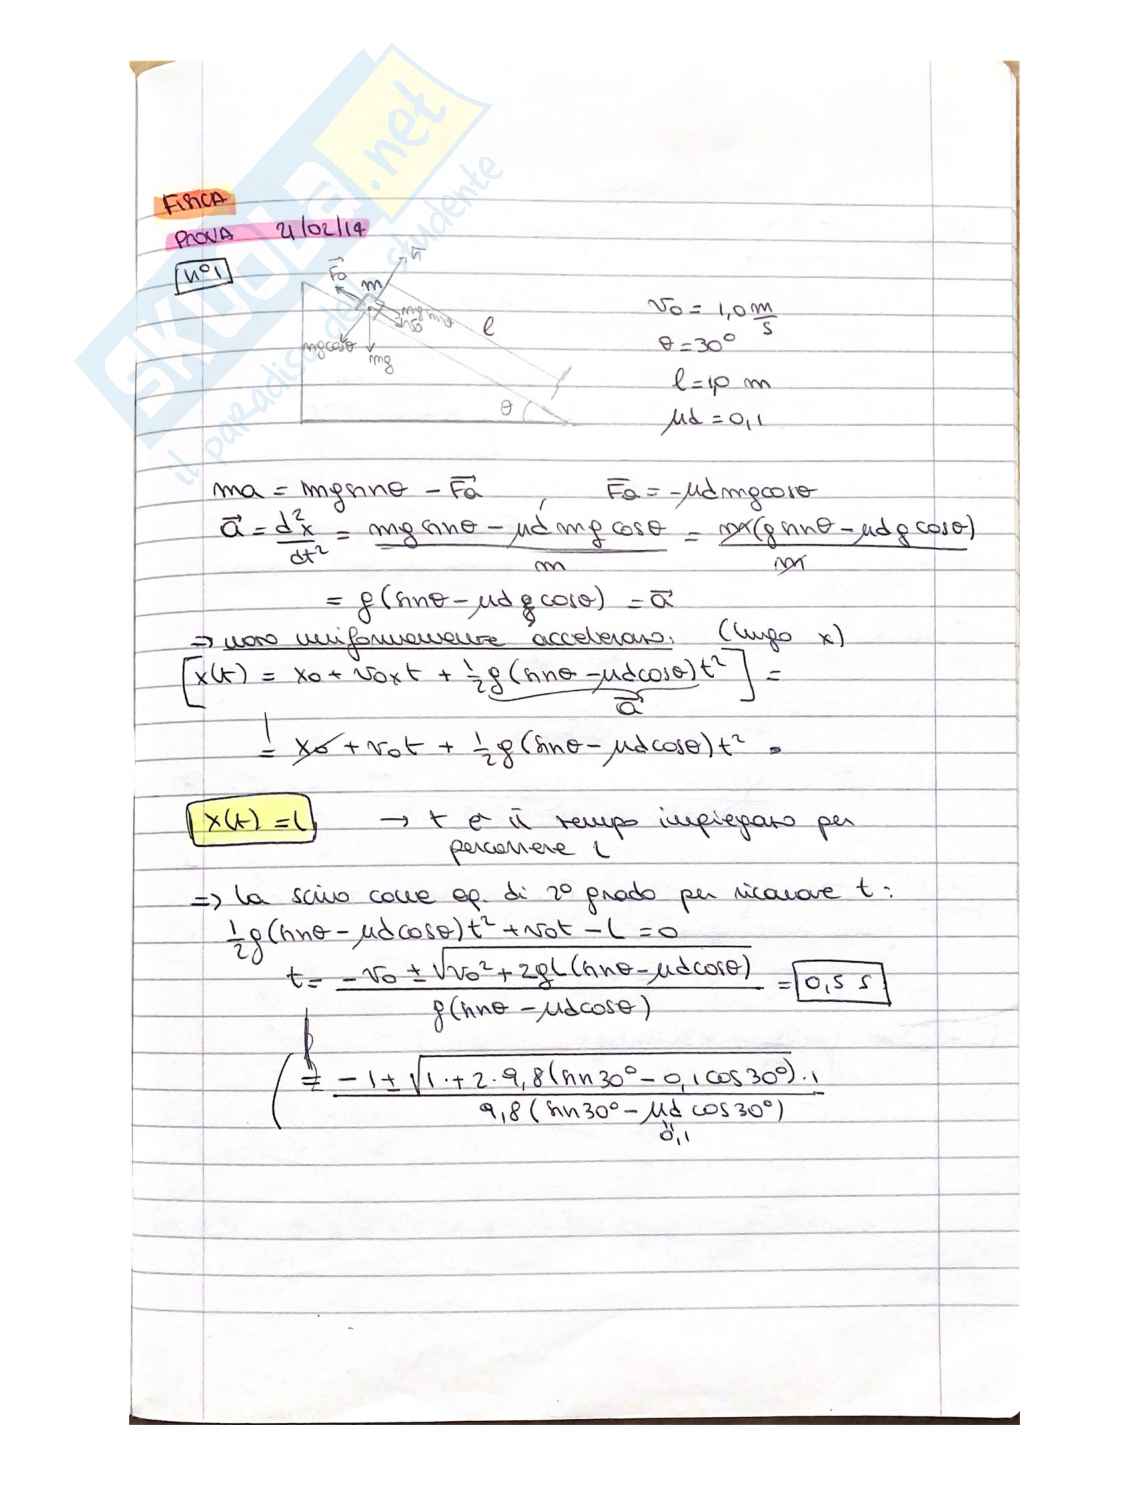 SKUOLA.net
il paradiso dello studente
FISICA
PROVA 21/02/14
n°1
Fa m n
mg sinθ
l
mg cosθ
mg
θ
v0 = 1,0 m/s
θ = 30°
l = 1,0 m
μd = 0,1
ma = mg sinθ - Fa , Fa = -μd mg cosθ
a = d²x/dt² = (mg sinθ - μd mg cosθ)/m = m(g sinθ - μd g cosθ)/m
= g(sinθ - μd g cosθ) = a
⇒ moto uniformemente accelerato. (lungo x)
[x(t) = x0 + v0x t + 1/2 g(sinθ - μd cosθ)t²] =
a
= x0 + v0 t + 1/2 g(sinθ - μd cosθ)t²
x(t) = l → t è il tempo impiegato per
percorrere l
⇒ la scrivo come eq. di 2° grado per ricavare t:
1/2 g(sinθ - μd cosθ)t² + v0t - l = 0
t = (-v0 ± √(v0² + 2gl(sinθ - μd cosθ)))/(g(sinθ - μd cosθ)) = 0,5 s
( = (-1 ± √(1 · + 2 · 9,8(sin30° - 0,1 cos30°) · 1))/(9,8(sin30° - μd cos30°))
0,1